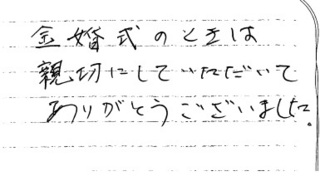 金婚式のときは
親切にしていただいて
ありがとうございました。